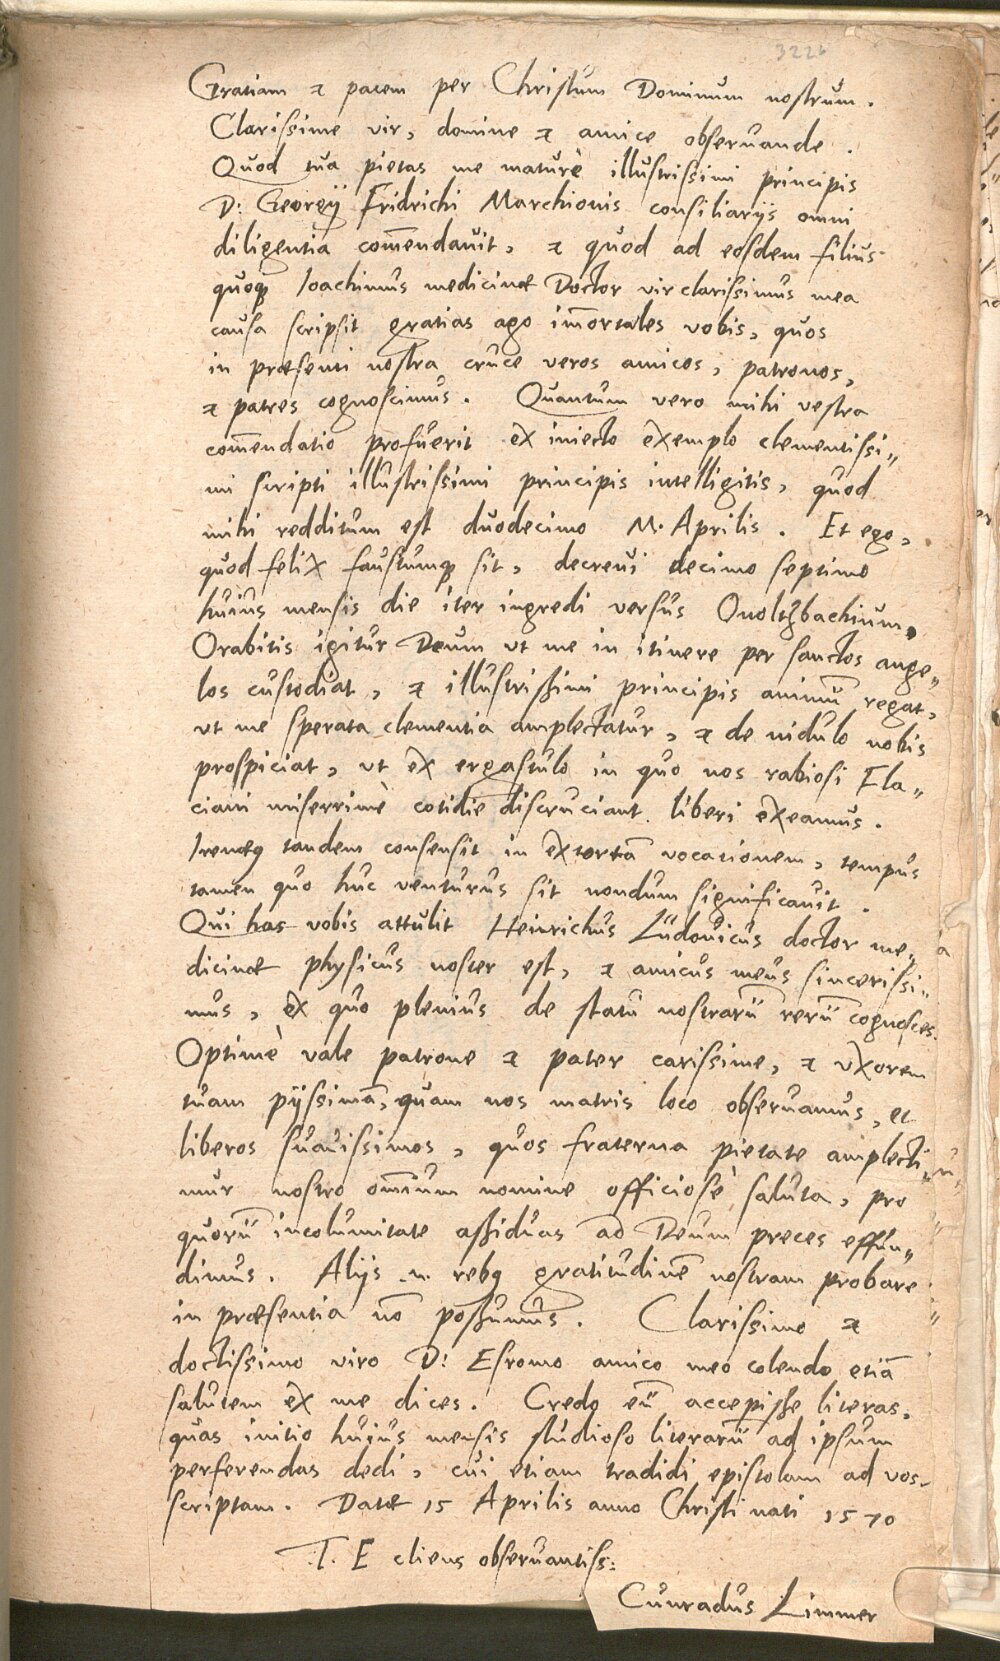 3226
Gratiam & pacem per Christum Dominum nostrum.
Clarissime vir, domine & amice obseruande.
Quod tua pietas me maturè illustrissimi principis
D: Georgij Fridrichi Marchionis consiliarijs omni
diligentia com̄endauit, & quod ad eosdem filius
quoq; Ioachimus medicinæ Doctor vir clarissimus mea
causa scripsit gratias ago im̄ortales vobis, quos
in præsenti nostra cruce veros amicos, patronos,
& patres cognoscimus. Quantum vero mihi vestra
com̄endatio profuerit ex iniecto exemplo clementissi„
mi scripti illustrissimi principis intelligitis, quod
mihi redditum est duodecimo M. Aprilis. Et ego,
quod felix faustumq; sit, decreui decimo septimo
huius mensis die iter ingredi versus Onoltzbachium,
Orabitis igitur Deum vt me in itinere per sanctos ange„
los custodiat, & illustrissimi principis animū regat,
vt me sperata clementia amplectatur, & de nidulo nobis
prospiciat, vt ex ergastulo in quo nos rabiosi Fla„
ciani miserrimè cotidie discruciant liberi exeamus.
Irenæq tandem consensit in extortā vocationem, tempus
tamen quo huc venturus sit nondum significauit.
Qui has vobis attulit Heinrichus Ludouicus doctor me„
dicinæ physicus noster est, & amicus meus sincerissi„
mus, ex quo plenius de statu nostrarū rerū cognosces.
Optimè vale patrone & pater carissime, & vxorem
tuam pijssimā, quam nos matris loco obseruamus, et
liberos suauissimos, quos fraterna pietate amplecti„
mur nostro om̄ium nomine officiosè saluta, pro
quorū incolumitate assiduas ad Deum preces effun„
dimus. Alijs .n. rebq gratitudinē nostram probare
in præsentia nō possumus. Clarissimo &
doctissimo viro D: Esromo amico meo colendo etiā
salutem ex me dices. Credo eū accepisse literas,
quas initio huius mensis studioso literarū ad ipsum
perferendas dedi, cui etiam tradidi epistolam ad vos
scriptam. Datæ 15 Aprilis anno Christi nati 1570
T. E cliens obseruantiss:
Cunradus Limmer